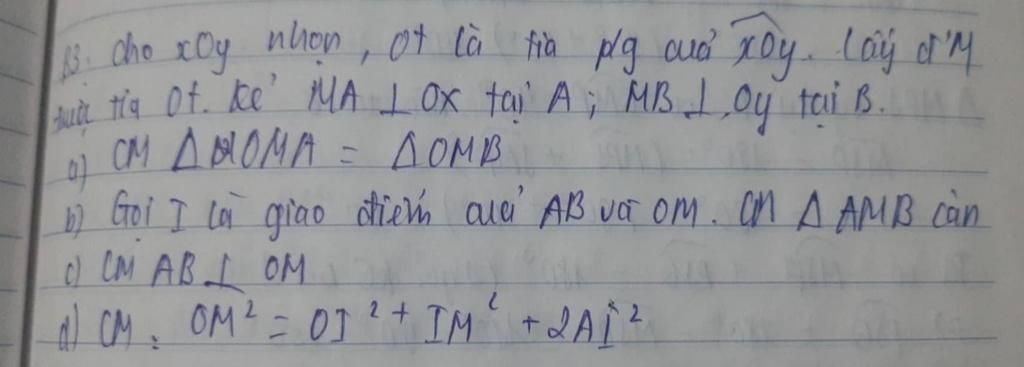 B3. Cho xOy nhọn, Ot là tia p/g của xOy. Lấy đ'M
thuộc tia Ot. Kẻ MA ⊥ Ox tại A; MB ⊥ Oy tại B.
a) CM Δ OMA = ΔOMB
b) Gọi I là giao điểm của AB và OM. CM Δ AMB cân
c) CM AB ⊥ OM
d) CM: OM² = OI² + IM² + 2AI²